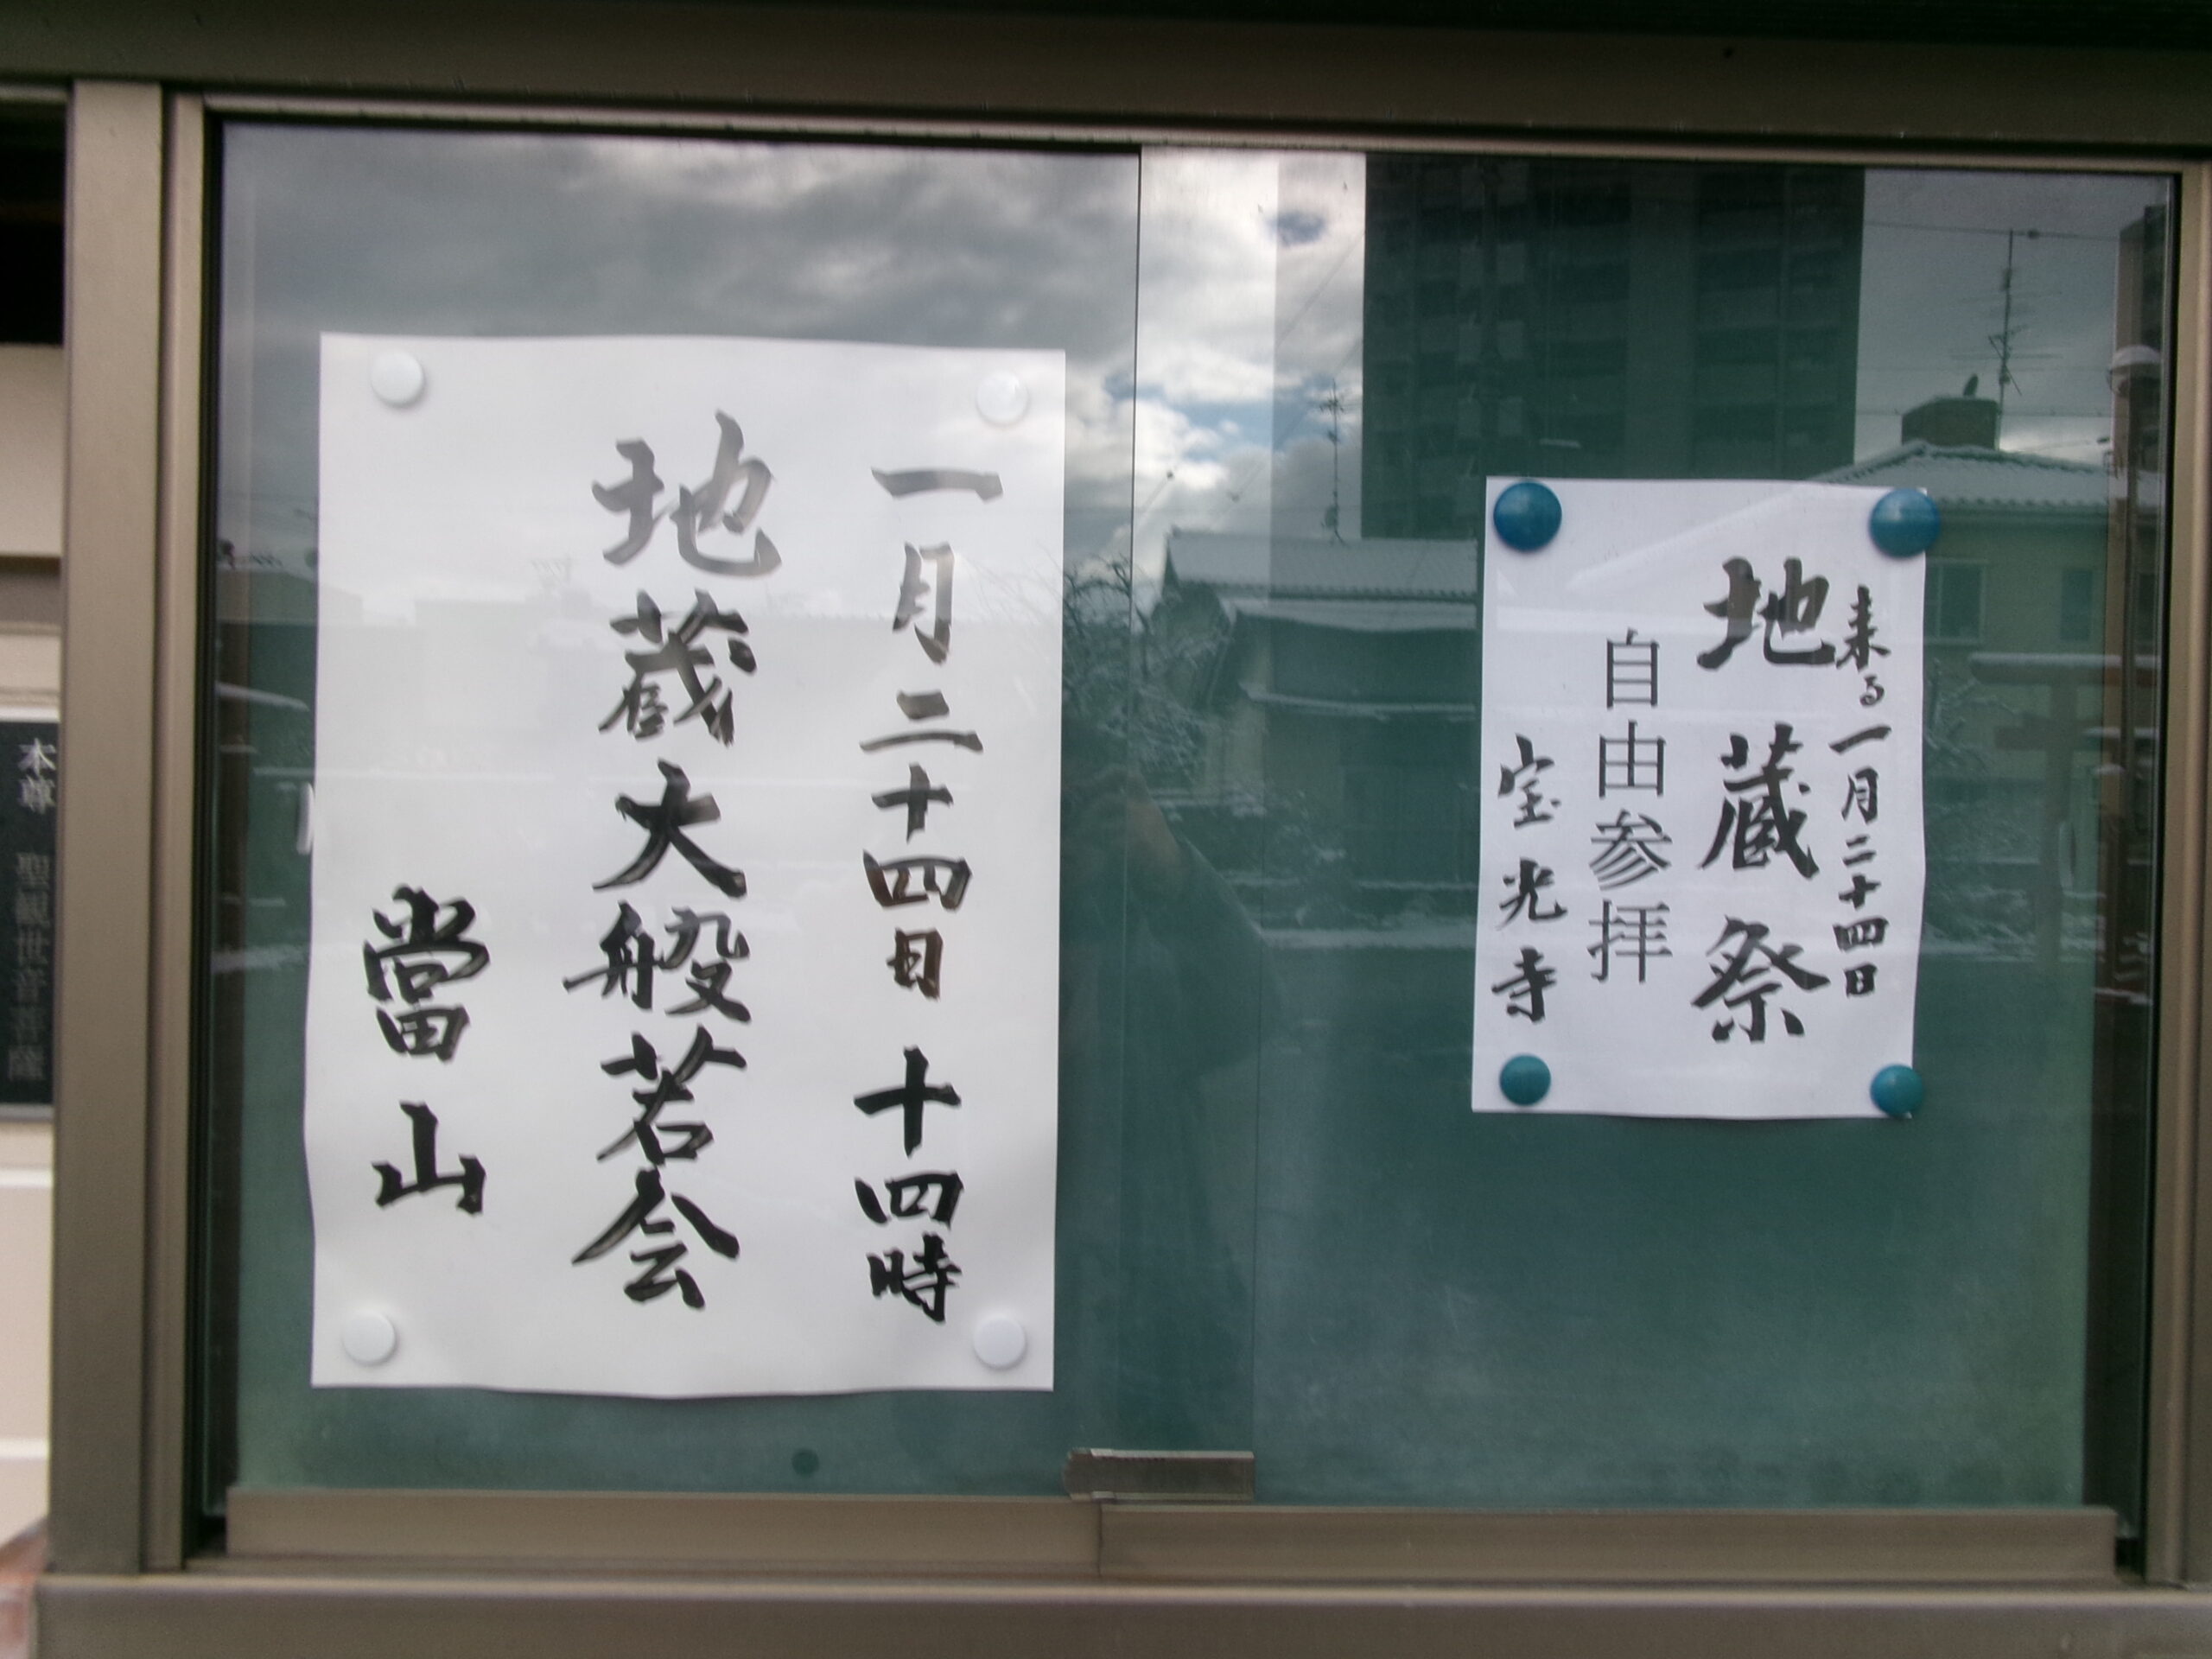 来る一月二十四日
地蔵祭
自由参拝
宝光寺
一月二十四日 十四時
地蔵大般若会
當山
本尊 聖観世音菩薩